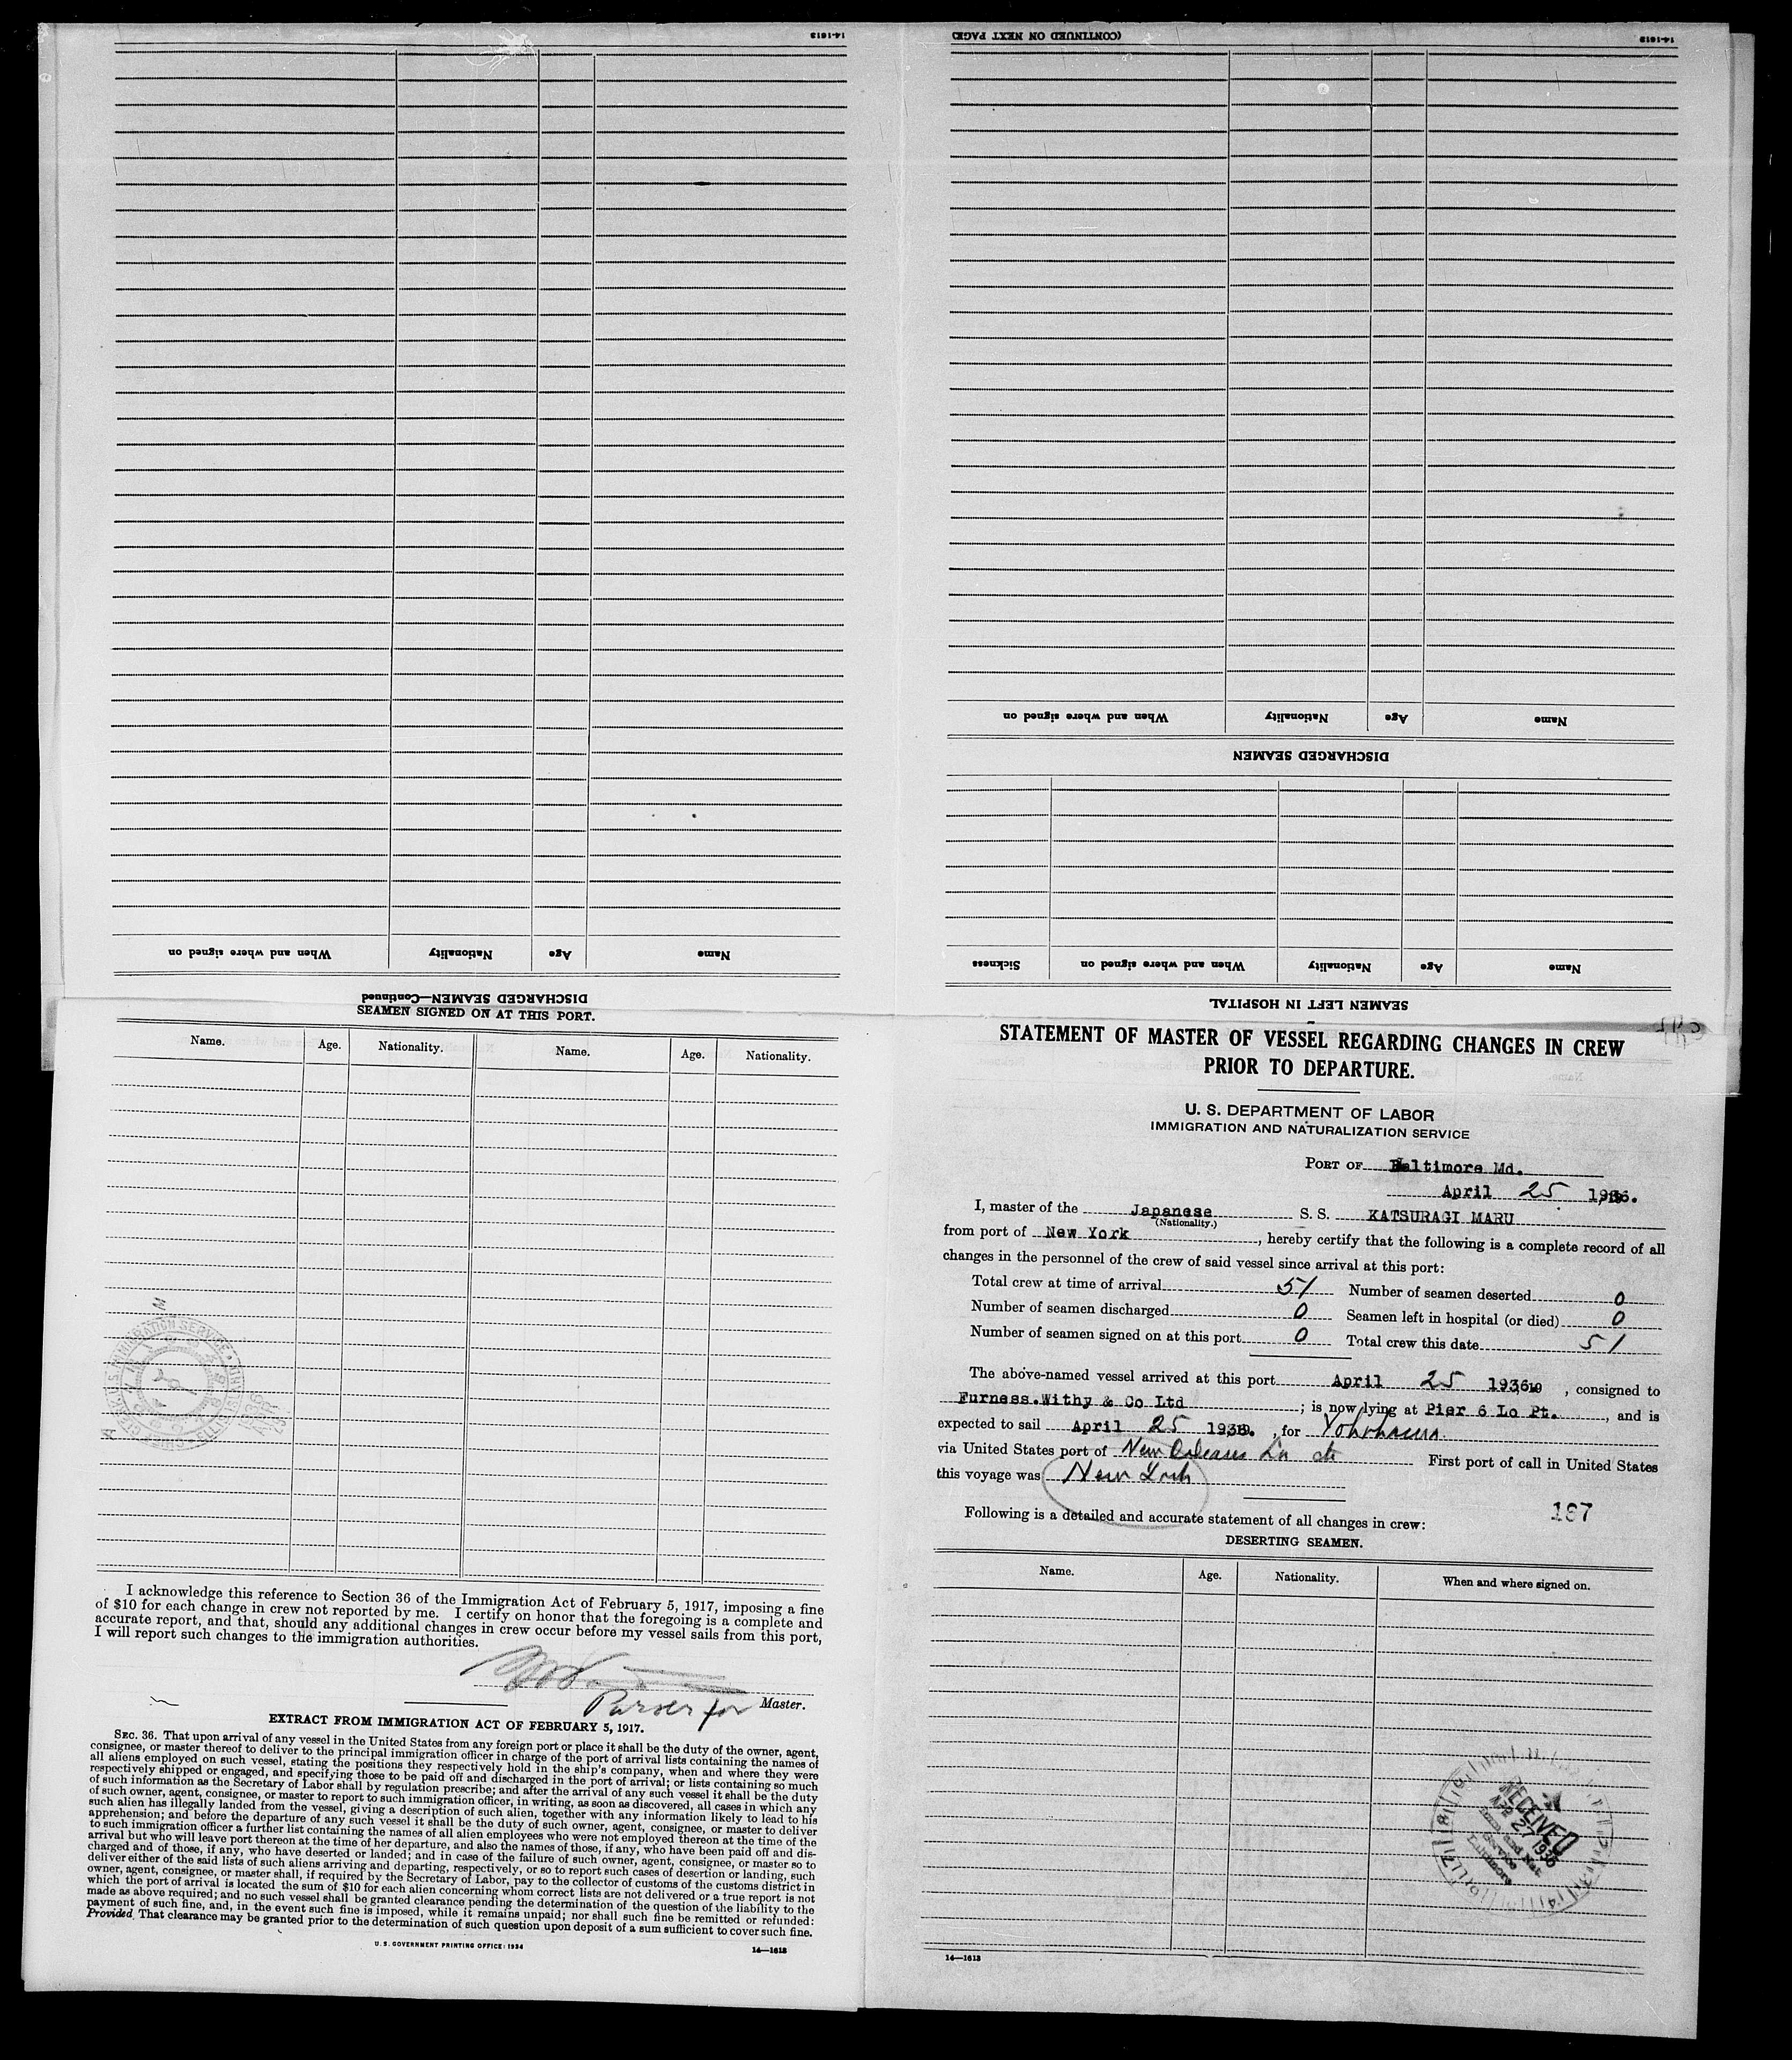 14-1613
(CONTINUED ON NEXT PAGE)
14-1613
When and where signed on Nationality Age Name
DISCHARGED SEAMEN
Sickness When and where signed on Nationality Age Name
SEAMEN LEFT IN HOSPITAL
When and where signed on Nationality Age Name
DISCHARGED SEAMEN—Continued
SEAMEN SIGNED ON AT THIS PORT.
Name. Age. Nationality. Name. Age. Nationality.
I acknowledge this reference to Section 36 of the Immigration Act of February 5, 1917, imposing a fine
of $10 for each change in crew not reported by me. I certify on honor that the foregoing is a complete and
accurate report, and that, should any additional changes in crew occur before my vessel sails from this port,
I will report such changes to the immigration authorities.
Purser for Master.
EXTRACT FROM IMMIGRATION ACT OF FEBRUARY 5, 1917.
SEC. 36. That upon arrival of any vessel in the United States from any foreign port or place it shall be the duty of the owner, agent,
consignee, or master thereof to deliver to the principal immigration officer in charge of the port of arrival lists containing the names of
all aliens employed on such vessel, stating the positions they respectively hold in the ship's company, when and where they were
respectively shipped or engaged, and specifying those to be paid off and discharged in the port of arrival; or lists containing so much
of such information as the Secretary of Labor shall by regulation prescribe; and after the arrival of any such vessel it shall be the duty
of such owner, agent, consignee, or master to report to such immigration officer, in writing, as soon as discovered, all cases in which any
such alien has illegally landed from the vessel, giving a description of such alien, together with any information likely to lead to his
apprehension; and before the departure of any such vessel it shall be the duty of such owner, agent, consignee, or master to deliver
to such immigration officer a further list containing the names of all alien employees who were not employed thereon at the time of the
arrival but who will leave port thereon at the time of her departure, and also the names of those, if any, who have been paid off and dis-
charged and of those, if any, who have deserted or landed; and in case of the failure of such owner, agent, consignee, or master so to
deliver either of the said lists of such aliens arriving and departing, respectively, or so to report such cases of desertion or landing, such
owner, agent, consignee, or master shall, if required by the Secretary of Labor, pay to the collector of customs of the customs district in
which the port of arrival is located the sum of $10 for each alien concerning whom correct lists are not delivered or a true report is not
made as above required; and no such vessel shall be granted clearance pending the determination of the question of the liability to the
payment of such fine, and, in the event such fine is imposed, while it remains unpaid; nor shall such fine be remitted or refunded:
Provided, That clearance may be granted prior to the determination of such question upon deposit of a sum sufficient to cover such fine.
U. S. GOVERNMENT PRINTING OFFICE: 1934
14—1613
STATEMENT OF MASTER OF VESSEL REGARDING CHANGES IN CREW
PRIOR TO DEPARTURE.
U. S. DEPARTMENT OF LABOR
IMMIGRATION AND NATURALIZATION SERVICE
PORT OF Baltimore Md.
April 25 1936.
I, master of the Japanese S. S. KATSURAGI MARU
(Nationality.)
from port of New York, hereby certify that the following is a complete record of all
changes in the personnel of the crew of said vessel since arrival at this port:
Total crew at time of arrival 51 Number of seamen deserted 0
Number of seamen discharged 0 Seamen left in hospital (or died) 0
Number of seamen signed on at this port 0 Total crew this date 51
The above-named vessel arrived at this port April 25 1936, consigned to
Furness.Withy & Co Ltd; is now lying at Pier 6 Lo Pt., and is
expected to sail April 25 1936., for Yokohama.
via United States port of New Orleans La etc First port of call in United States
this voyage was New York
187
Following is a detailed and accurate statement of all changes in crew:
DESERTING SEAMEN.
Name. Age. Nationality. When and where signed on.
RECEIVED
APR 27 1936
Imm. and Nat.
Service
Baltimore
14—1613